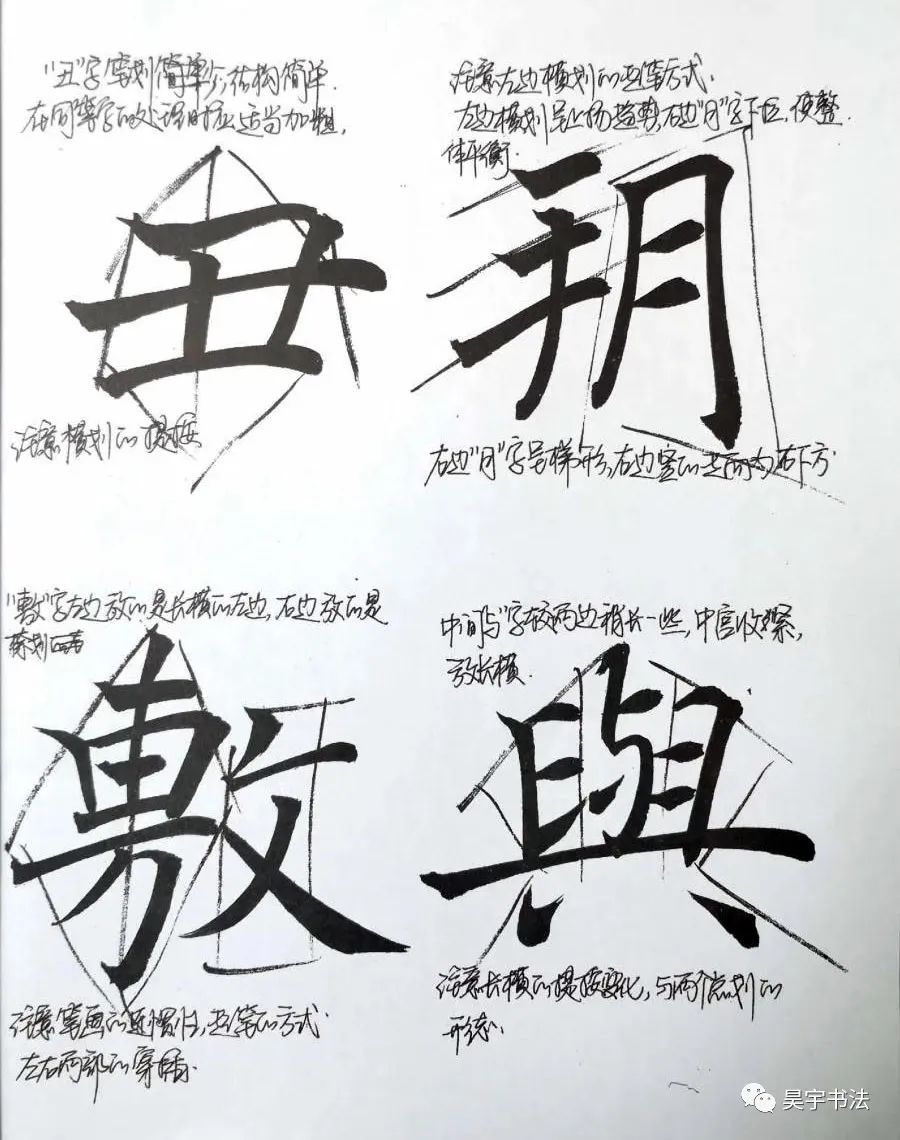 "丑"字笔划简单少,结构简单.
在同等字的处理时应适当加粗,
丑
注意横划的提按
注意左边横划的运笔方式.
左边横划呈上扬趋势,右边"月"字下压,使整
体平衡.
朔
右边"月"字呈梯形,右边竖的去向为右下方
"敷"字左边放的是长横的左边,右边放的是
捺划
敷
注意笔画的运惯性,运笔的方式.
左右两部的穿插.
中间"与"字较两边稍长一些,中宫收紧,
放长横.
與
注意长横的提按变化,与两个点划的
形态.
昊宇书法